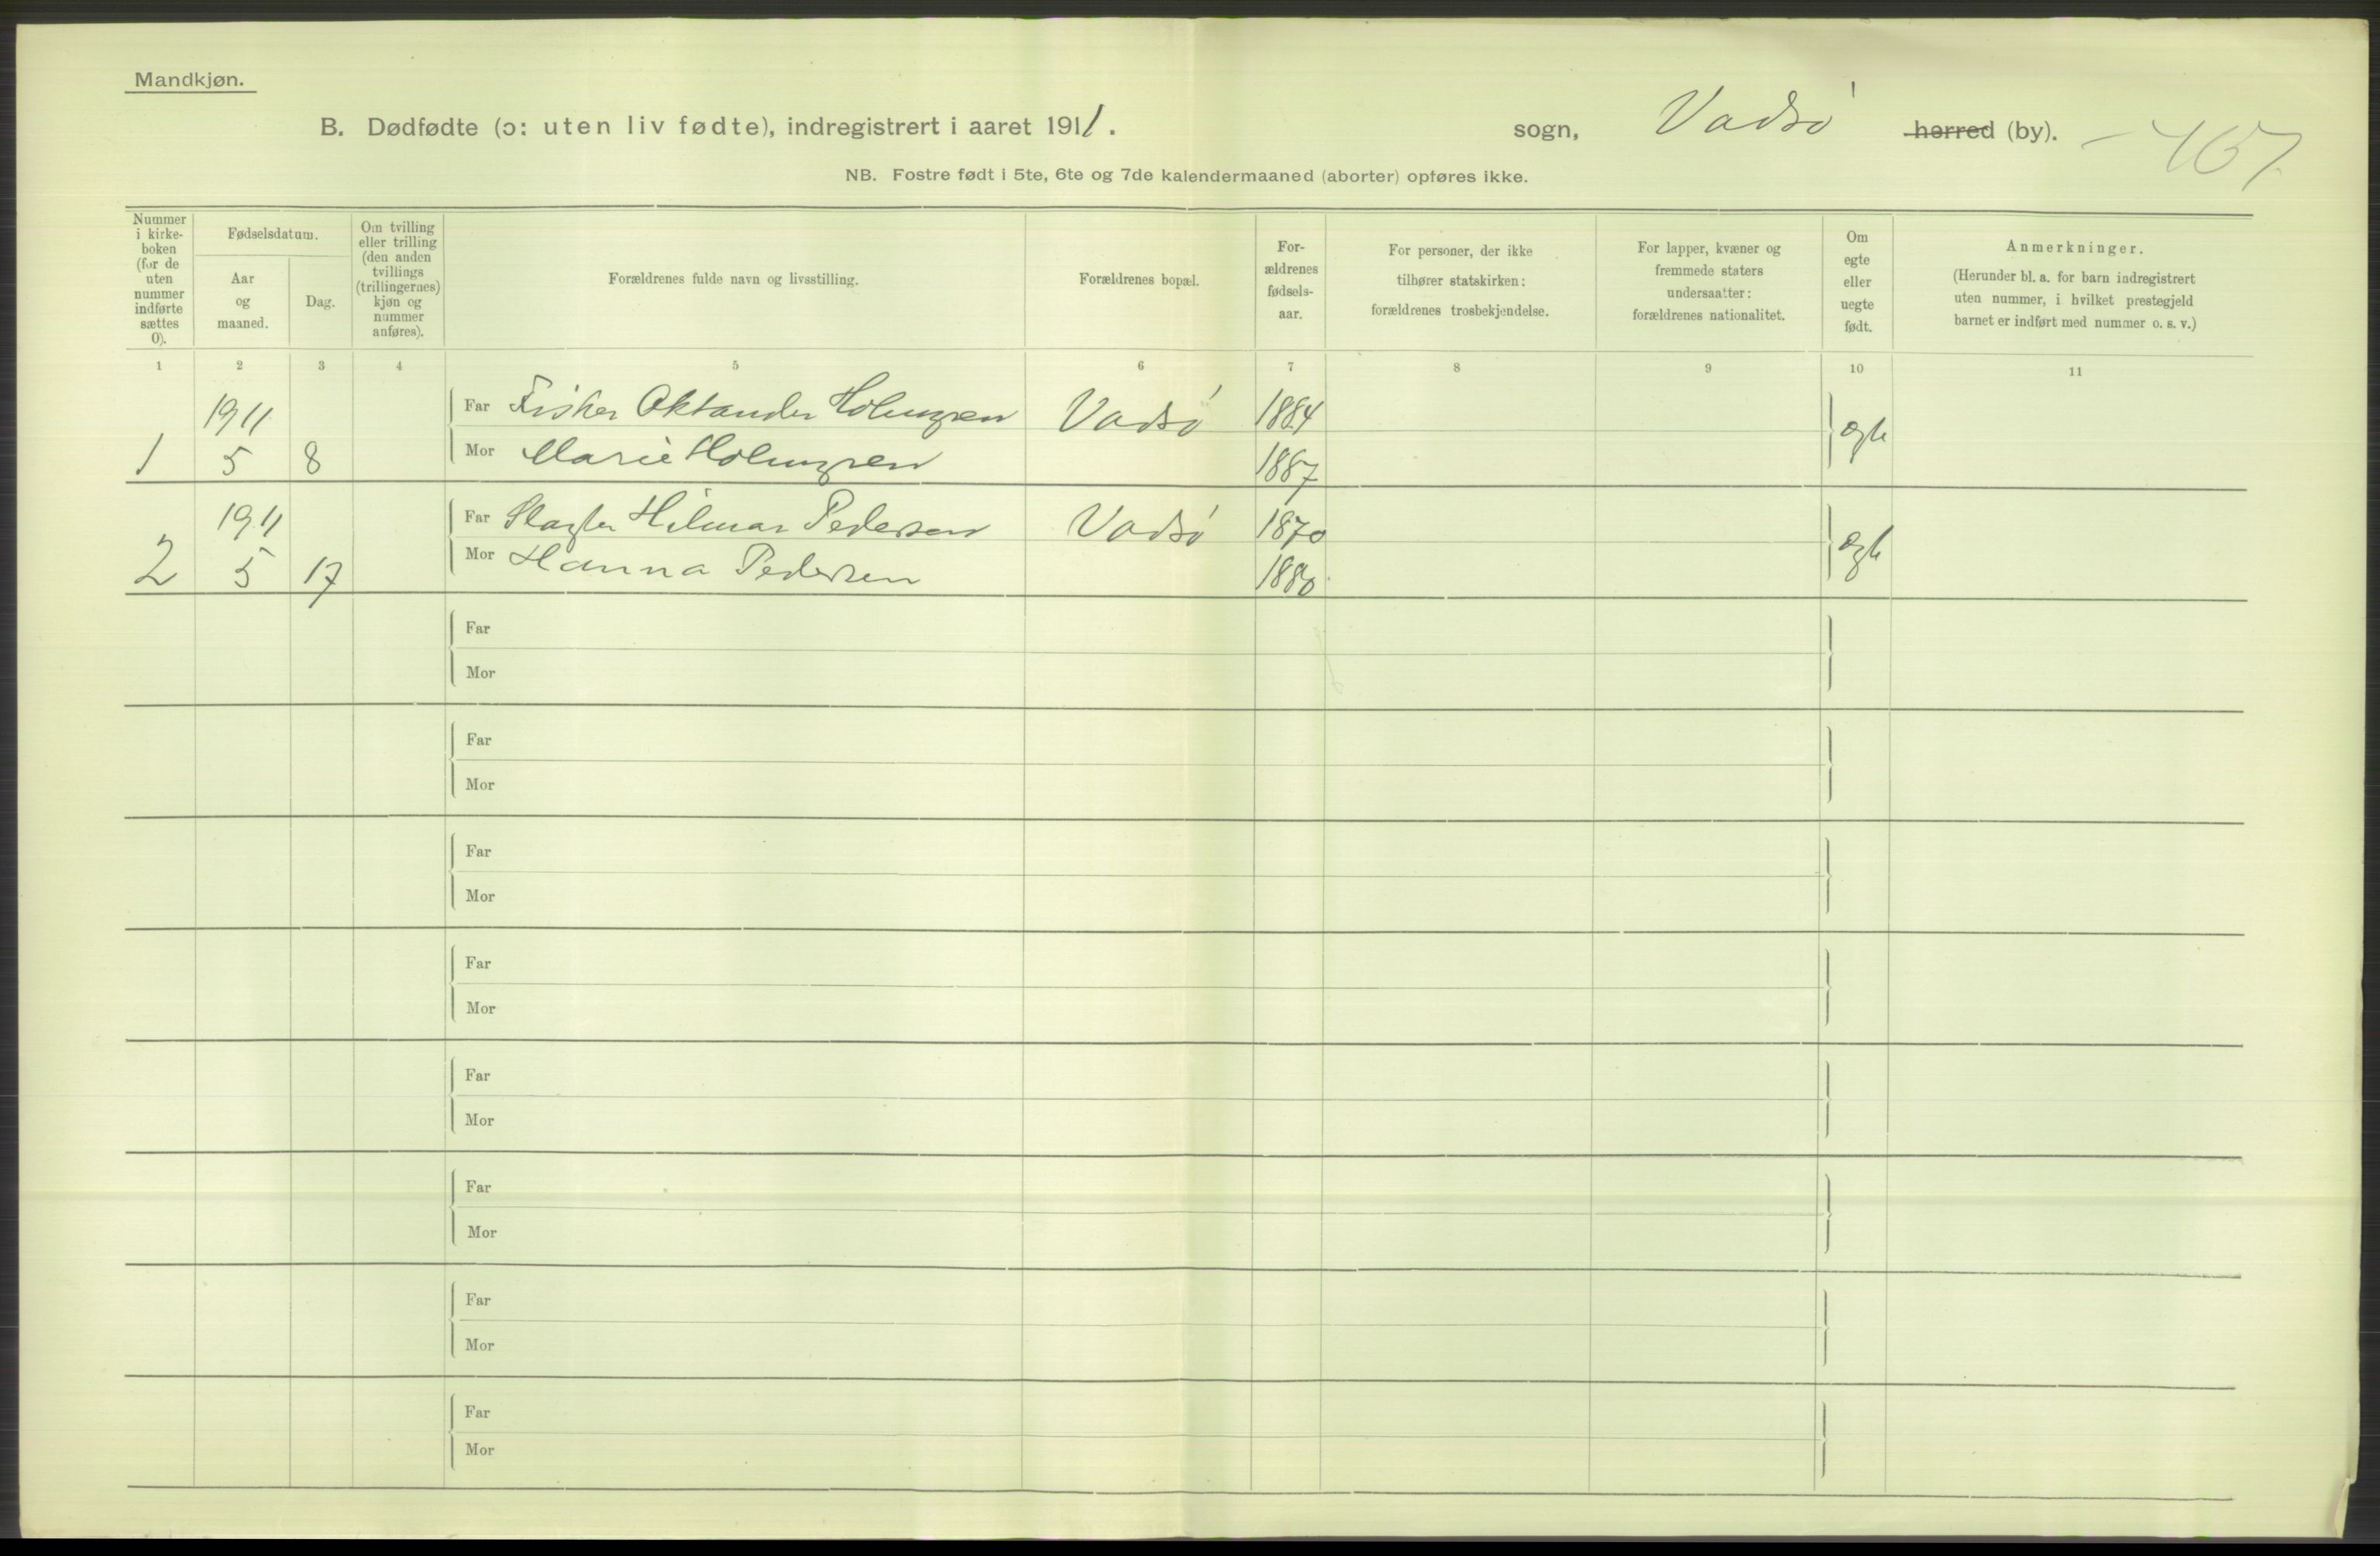 Mandkjøn.
B. Dødfødte (ɔ: uten liv fødte), indregistrert i aaret 1911.
sogn, Vadsø herred (by).
NB. Fostre født i 5te, 6te og 7de kalendermaaned (aborter) opføres ikke.
Nummer
i kirke-
boken
(for de
uten
nummer
indførte
sættes
0).
Fødselsdatum.
Aar
og
maaned.
Dag.
Om tvilling
eller trilling
(den anden
tvillings
(trillingernes)
kjøn og
nummer
anføres).
Forældrenes fulde navn og livsstilling.
Forældrenes bopæl.
For-
ældrenes
fødsels-
aar.
For personer, der ikke
tilhører statskirken:
forældrenes trosbekjendelse.
For lapper, kvæner og
fremmede staters
undersaatter:
forældrenes nationalitet.
Om
egte
eller
uegte
født.
Anmerkninger.
(Herunder bl. a. for barn indregistrert
uten nummer, i hvilket prestegjeld
barnet er indført med nummer o. s. v.)
1 2 3 4 5 6 7 8 9 10 11
1911 Far Fisker Oktander Holmgren Vadsø 1884 ægte
1 5 8 Mor Marie Holmgren 1887
1911 Far Slagter Hilmar Pedersen Vadsø 1870 ægte
2 5 17 Mor Hanna Pedersen 1880
Far
Mor
Far
Mor
Far
Mor
Far
Mor
Far
Mor
Far
Mor
Far
Mor
Far
Mor